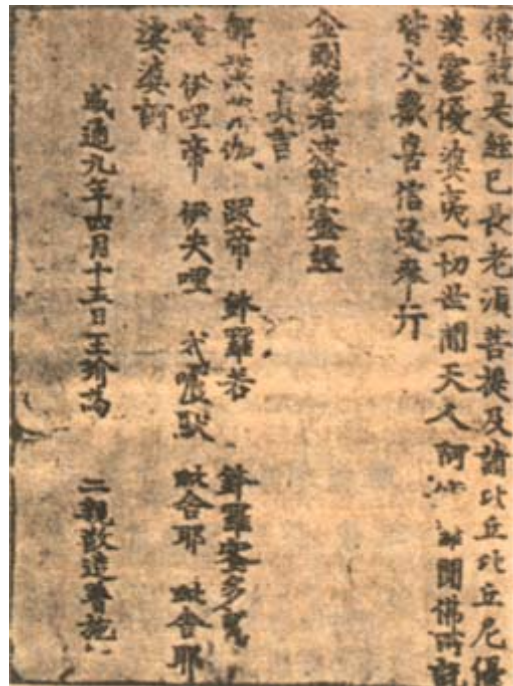 佛說是經已長老須菩提及諸比丘比丘尼優
婆塞優婆夷一切世間天人阿 聞佛所說
皆大歡喜信受奉行
金剛般若波羅蜜經
真言
那謨 伽 跋帝 鉢羅若 鉢羅蜜多
唵 伊哩帝 伊失哩 戍嚧馱 毗舍耶 毗舍耶
娑婆訶
咸通九年四月十五日王玠為 二親敬造普施